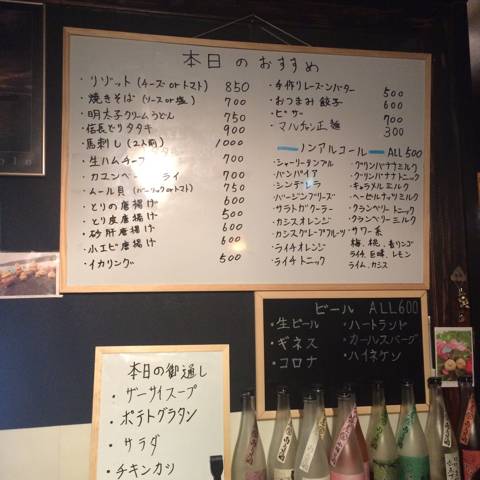 本日のおすすめ
・リゾット(チーズorトマト) 850
・焼きそば(ソースor塩) 700
・明太子クリームうどん 750
・信長どりタタキ 900
・馬刺し(2人前) 1000
・生ハムチーフ 700
・カマンベー ライ 700
・ムール貝(バーリックorトマト) 750
・とりの唐揚げ 600
・とり皮唐揚げ 500
・砂肝唐揚げ 600
・小エビ唐揚げ 600
・イカリング 500
・手作りレーズンバター 500
・おつまみ餃子 600
・ピザー 700
・マルチャン正麺 300
ノンアルコール ALL 500
・シャーリーテンプル
・バンパイア
・シンデレラ
・バージンブリーズ
・サラトガクーラー
・カシスオレンジ
・カシスグレープフルーツ
・ライチオレンジ
・ライチトニック
・グリンバナナミルク
・グリンバナナトニック
・キャラメルミルク
・ヘーゼルナッツミルク
・クランベリートニック
・クランベリーミルク
・サワー系
梅、桃、青リンゴ
ライチ、巨峰、レモン
ライム、カシス
ビール ALL600
・生ビール
・ギネス
・コロナ
・ハートランド
・カールスバーグ
・ハイネケン
本日の御通し
・ザーサイスープ
・ポテトグラタン
・サラダ
・チキンカツ